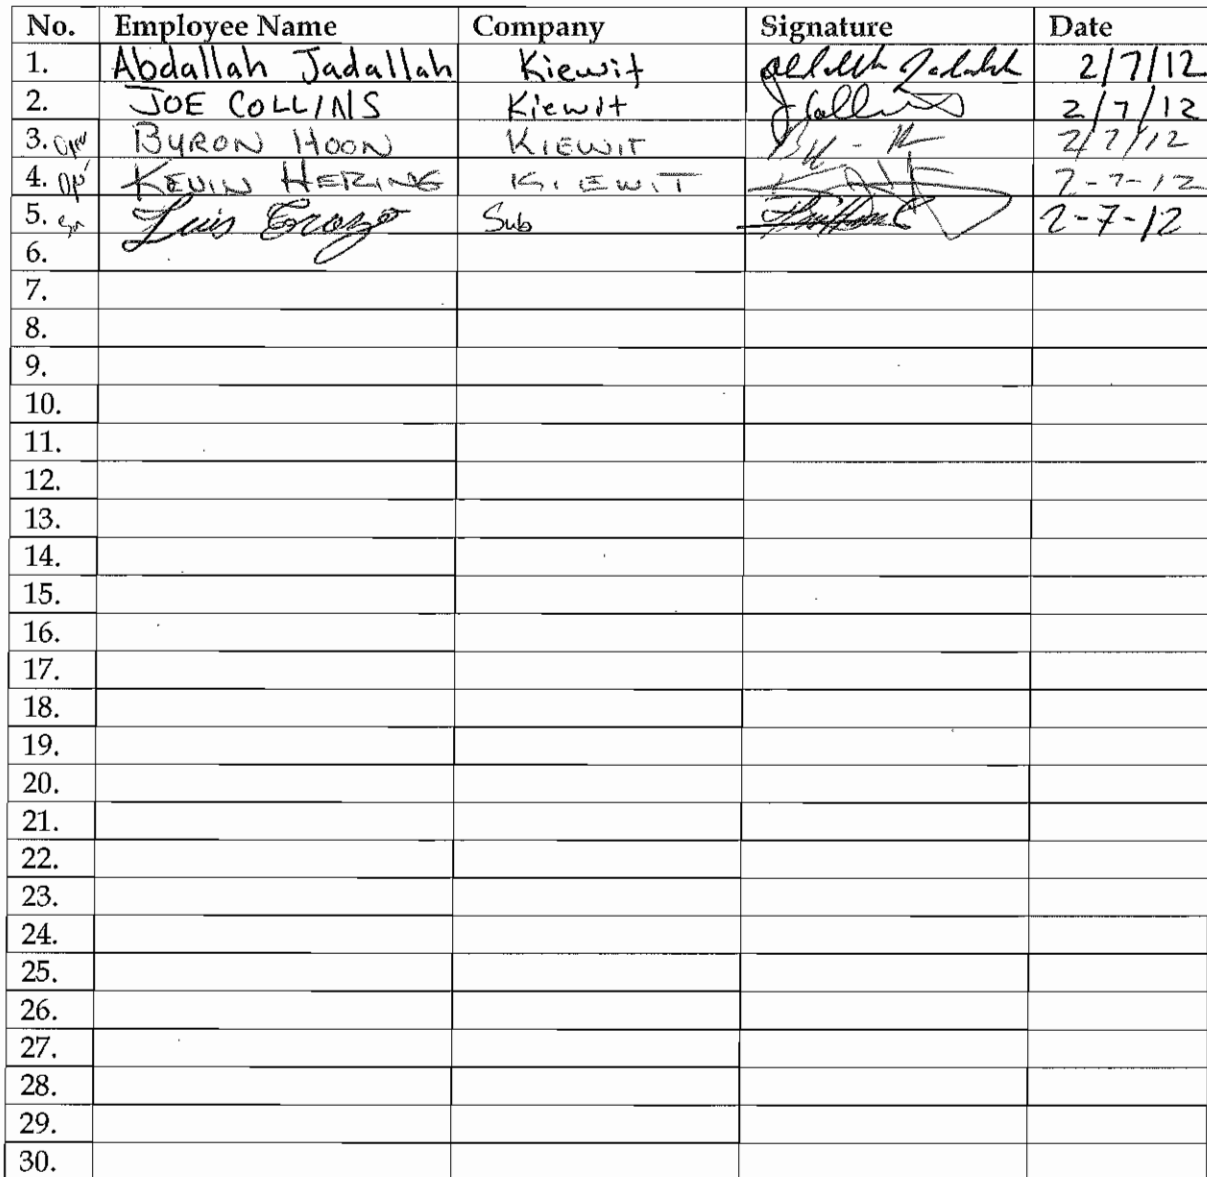 No. Employee Name Company Signature Date
1. Abdallah Jadallah Kiewit Abdallah Jadallah 2/7/12
2. JOE COLLINS Kiewit J Collins 2/7/12
3. BYRON HOON KIEWIT 2/7/12
4. KEVIN HERING KIEWIT 2-7-12
5. Luis Sub 2-7-12
6.
7.
8.
9.
10.
11.
12.
13.
14.
15.
16.
17.
18.
19.
20.
21.
22.
23.
24.
25.
26.
27.
28.
29.
30.